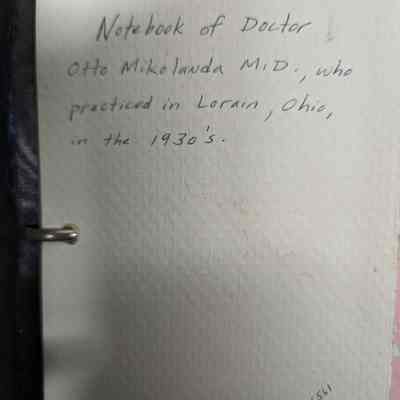 Notebook of Doctor
Otto Mikolanda M.D., who
practiced in Lorain, Ohio,
in the 1930's.